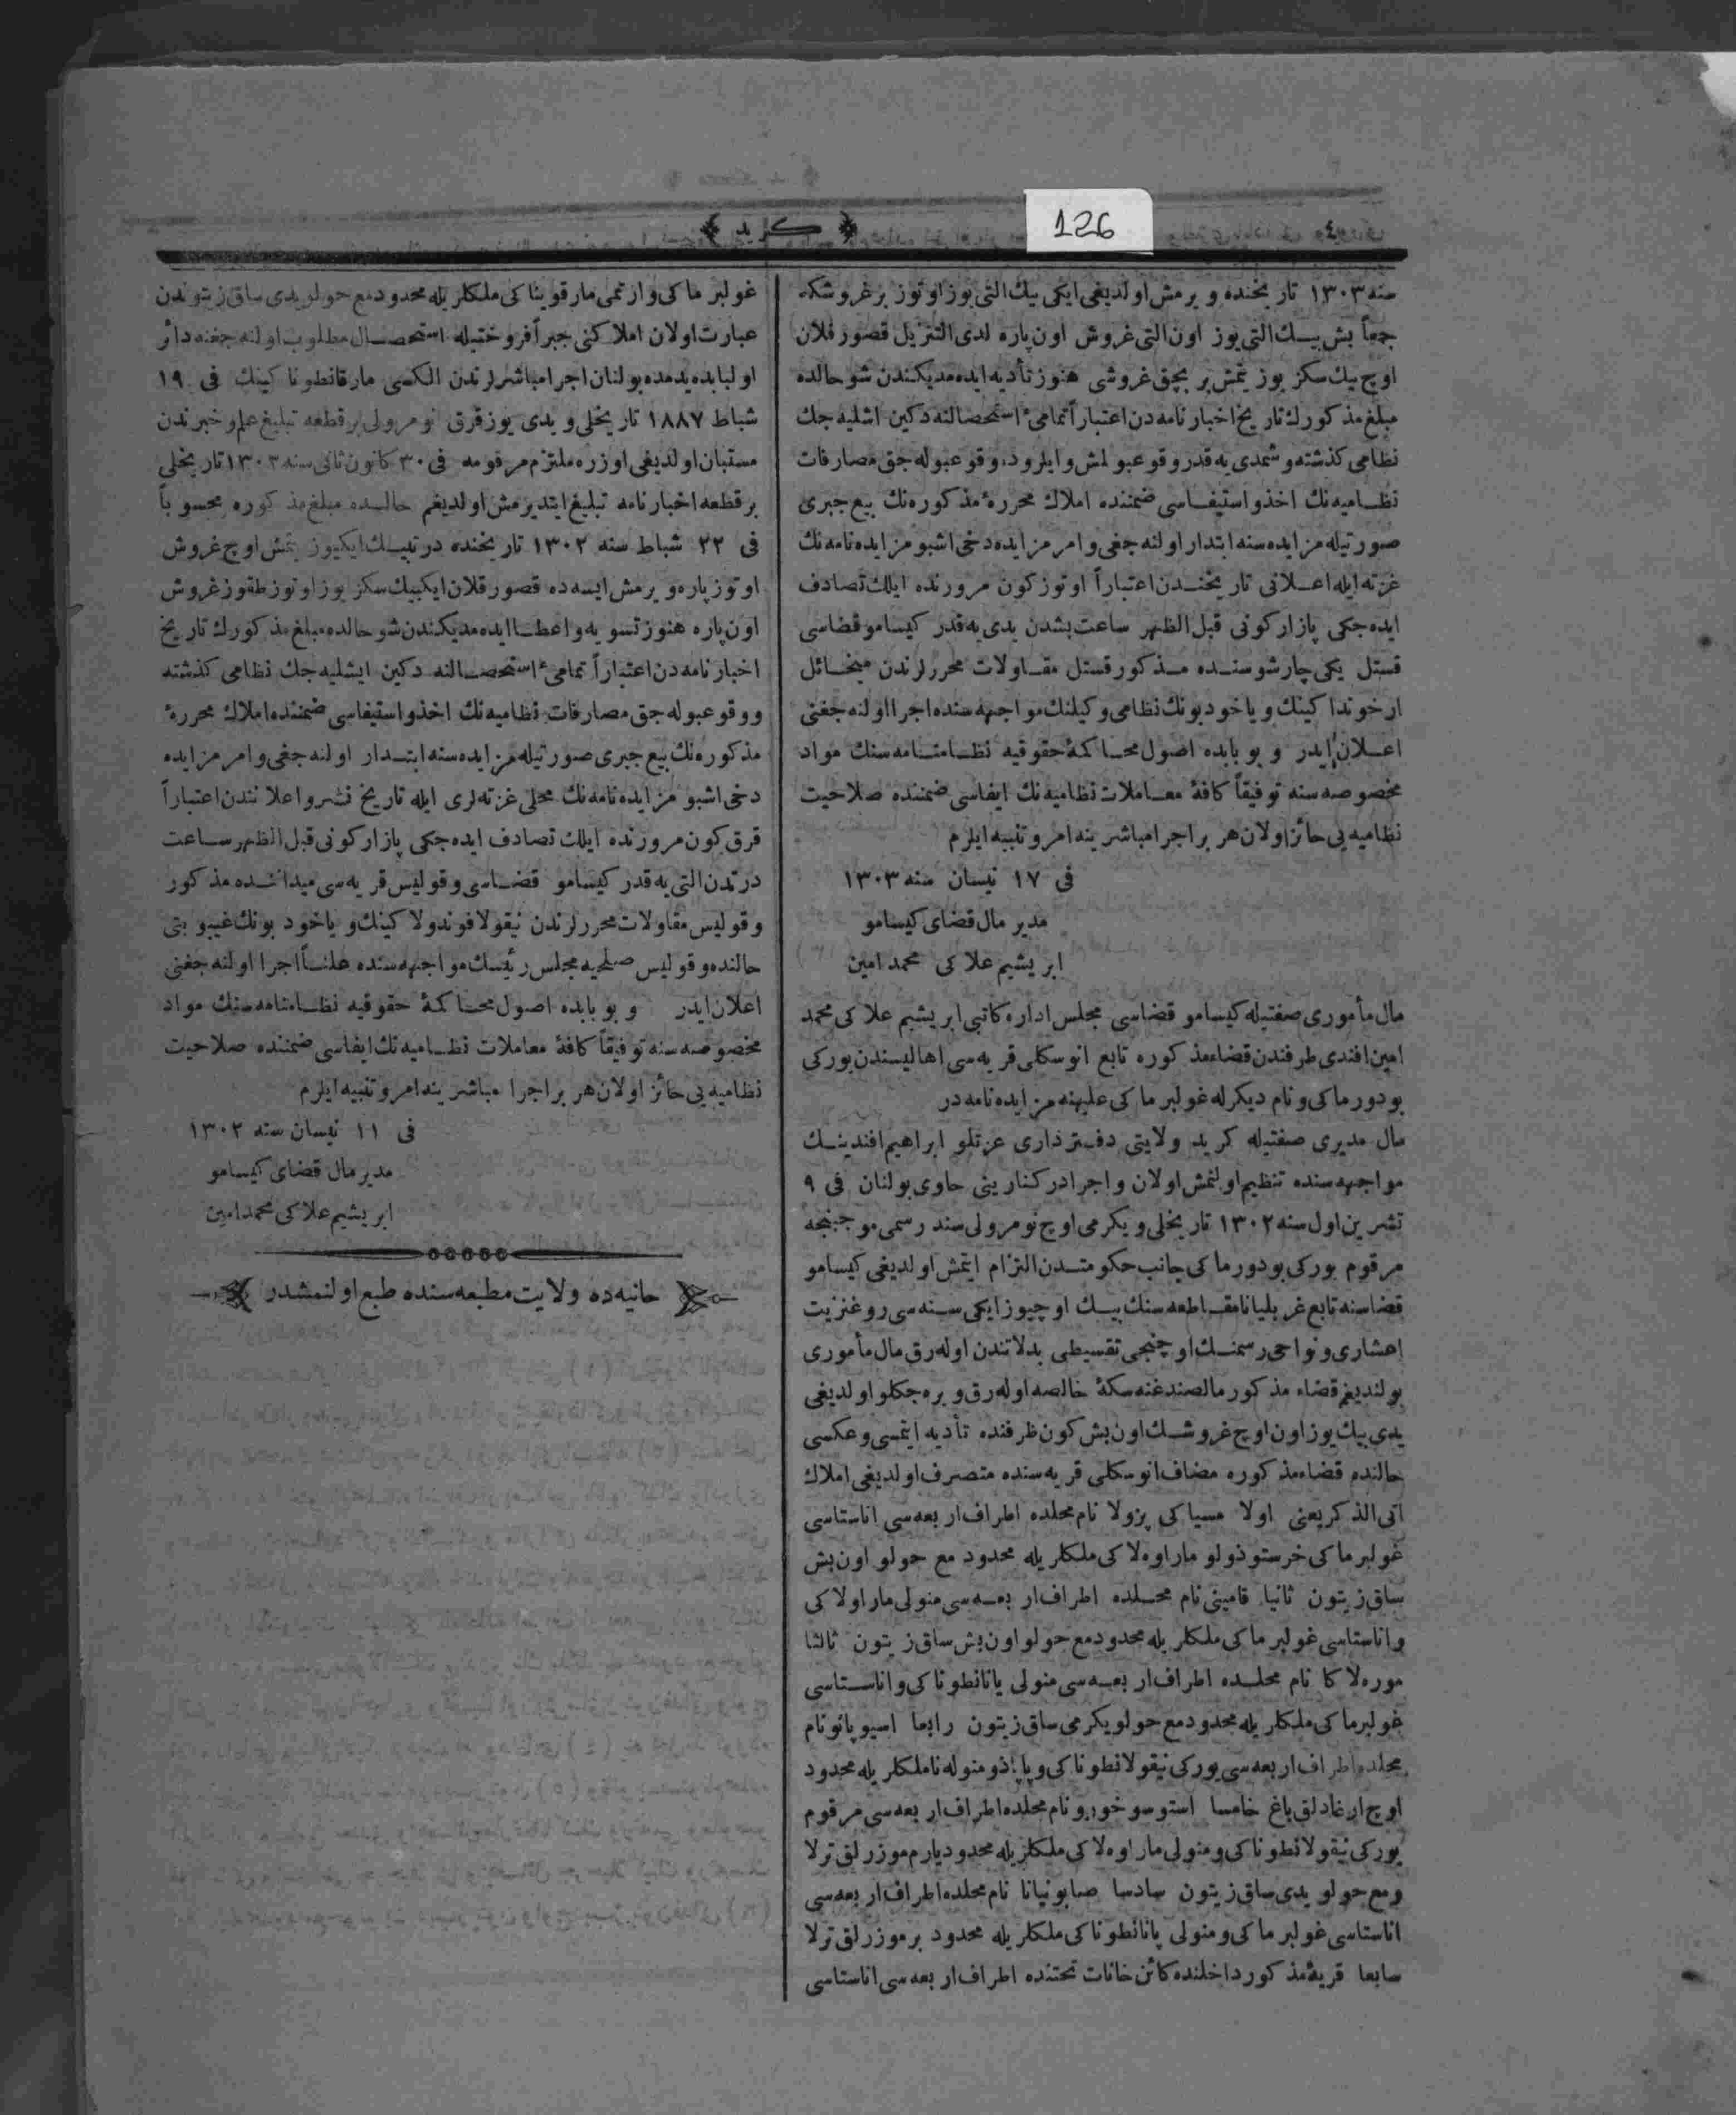 126
كريد
سنه ١٣٠٣ تاريخنده ويرمش اولديغى ايكى بيك التى يوز اوتوز بر غروشكه
جمعاً بش بيك التى يوز اون التى غروش اون پاره لدى التنزيل قصور قلان
اوچ بيك سكز يوز يتمش بر بچق غروشى هنوز تأديه ايده مديكندن شو حالده
مبلغ مذكورك تاريخ اخبارنامه دن اعتباراً تمامىء استحصالنه دكين اشليه جك
نظامى كذشته و شمدى يه قدر وقوعبولمش و ايلرود، وقوعبوله جق مصارفات
نظاميه نك اخذ و استيفاسى ضمننده املاك محررهٔ مذكوره نك بيع جبرى
صورتيله مزايده سنه ابتدار اولنه جغى و امر مزايده دخى اشبو مزايده نامه نك
غزته ايله اعلانى تاريخندن اعتباراً اوتوز كون مرورنده ايلك تصادف
ايده جكى پازار كونى قبل الظهر ساعت بشدن يدى يه قدر كيسامو قضاسى
قستل يكى چارشوسنده مذكور قستل مقاولات محررلرندن ميخائل
ارخونداكينك و ياخود بونك نظامى وكيلنك مواجهه سنده اجرا اولنه جغنى
اعلان ايدر و بو بابده اصول محاكمهٔ حقوقيه نظامنامه سنك مواد
مخصوصه سنه توفيقاً كافهٔ معاملات نظاميه نك ايفاسى ضمننده صلاحيت
نظاميه يى حائز اولان هر بر اجرا مباشرينه امر و تنبيه ايلرم
فى ١٧ نيسان سنه ١٣٠٣
مدير مال قضاى كيسامو
ابريشيم علاكى محمد امين
مال مأمورى صفتيله كيسامو قضاسى مجلس اداره كاتبى ابريشيم علاكى محمد
امين افندى طرفندن قضاء مذكوره تابع انوسكلى قريه سى اهاليسندن يوركى
بودورماكى و نام ديكرله غولبرماكى عليهنه مزايده نامه در
مال مديرى صفتيله كريد ولايتى دفتردارى عزتلو ابراهيم افندينك
مواجهه سنده تنظيم اولنمش اولان و اجرا در كنارينى حاوى بولنان فى ٩
تشرين اول سنه ١٣٠٢ تاريخلى و يكرمى اوچ نومرولى سند رسمى موجبنجه
مرقوم يوركى بودورماكى جانب حكومتدن التزام ايتمش اولديغى كيسامو
قضاسنه تابع غربليانا مقاطعه سنك بيك اوچيوز ايكى سنه سى روغن زيت
اعشارى و نواحى رسمنك اوچنجى تقسيطى بدلاتندن اوله رق مال مأمورى
بولنديغم قضاء مذكور مالصندغنه سكهٔ خالصه اوله رق ويره جكلو اولديغى
يدى بيك يوز اون اوچ غروشك اون بش كون ظرفنده تأديه ايتمسى و عكسى
حالنده قضاء مذكوره مضاف انوسكلى قريه سنده متصرف اولديغى املاك
اتى الذكر يعنى اولا مسياكى پزولا نام محلده اطراف اربعه سى اناستاسى
غولبرماكى خرستوذولو ماراوه لاكى ملكلريله محدود مع حولو اون بش
ساق زيتون ثانيا قامينى نام محلده اطراف اربعه سى منولى ماراولاكى
و اناستاسى غولبرماكى ملكلريله محدود مع حولو اون بش ساق زيتون ثالثا
موره لاكا نام محلده اطراف اربعه سى منولى يانانطوناكى و اناستاسى
غولبرماكى ملكلريله محدود مع حولو يكرمى ساق زيتون رابعا اسيوپانو نام
محلده اطراف اربعه سى يوركى نيقولانطوناكى و پاپاذو منوله نا ملكلريله محدود
اوچ ارغادلق باغ خامسا استوسوخورو نام محلده اطراف اربعه سى مرقوم
يوركى نيقولانطوناكى و منولى ماراوه لاكى ملكلريله محدود يارم موزرلق ترلا
و مع حولو يدى ساق زيتون سادسا صابونيانا نام محلده اطراف اربعه سى
اناستاسى غولبرماكى و منولى پانانطوناكى ملكلريله محدود بر موزرلق ترلا
سابعا قريهٔ مذكور داخلنده كائن خانات تحتنده اطراف اربعه سى اناستاسى
غولبرماكى و ارتمى مارقويناكى ملكلريله محدود مع حولو يدى ساق زيتوندن
عبارت اولان املاكنى جبراً فروختيله استحصال مطلوب اولنه جغنه دائر
اولبابده يدمده بولنان اجرا مباشرلرندن الكسى مارقانطوناكينك فى ١٩
شباط ١٨٨٧ تاريخلى و يدى يوز قرق نومرولى بر قطعه تبليغ علم و خبرندن
مستبان اولديغى اوزره ملتزم مرقومه فى ٣٠ كانون ثانى سنه ١٣٠٢ تاريخلى
بر قطعه اخبارنامه تبليغ ايتديرمش اولديغم حالده مبلغ مذكوره محسوباً
فى ٢٢ شباط سنه ١٣٠٢ تاريخنده درتبيك ايكيوز يتمش اوچ غروش
اوتوز پاره ويرمش ايسه ده قصور قلان ايكيبيك سكز يوز اوتوز طقوز غروش
اون پاره هنوز تسويه و اعطا ايده مديكندن شو حالده مبلغ مذكورك تاريخ
اخبارنامه دن اعتباراً تمامىء استحصالنه دكين ايشليه جك نظامى كذشته
و وقوعبوله جق مصارفات نظاميه نك اخذ و استيفاسى ضمننده املاك محررهٔ
مذكوره نك بيع جبرى صورتيله مزايده سنه ابتدار اولنه جغى و امر مزايده
دخى اشبو مزايده نامه نك محلى غزته لرى ايله تاريخ نشر و اعلانندن اعتباراً
قرق كون مرورنده ايلك تصادف ايده جكى پازار كونى قبل الظهر ساعت
درتدن التى يه قدر كيسامو قضاسى وقوليس قريه سى ميداننده مذكور
وقوليس مقاولات محررلرندن نيقولا فوندولاكينك و ياخود بونك غيبوبتى
حالنده وقوليس صلحيه مجلس رئيسك مواجهه سنده علناً اجرا اولنه جغنى
اعلان ايدر و بو بابده اصول محاكمهٔ حقوقيه نظامنامه سنك مواد
مخصوصه سنه توفيقاً كافهٔ معاملات نظاميه نك ايفاسى ضمننده صلاحيت
نظاميه يى حائز اولان هر بر اجرا مباشرينه امر و تنبيه ايلرم
فى ١١ نيسان سنه ١٣٠٢
مدير مال قضاى كيسامو
ابريشيم علاكى محمد امين
حانيه ده ولايت مطبعه سنده طبع اولنمشدر